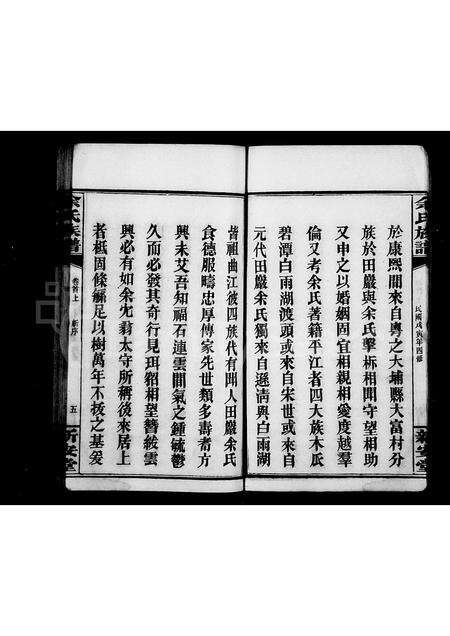 余氏族譜
民國戊寅年四修
新安堂
於康熙間來自粵之大埔縣大富村分
族於田嚴與余氏擊柝相聞守望相助
又申之以婚姻固宜相親相愛度越羣
倫又考余氏著籍平江者四大族木瓜
碧潭白雨湖渡頭或來自宋世或來自
元代田嚴余氏獨來自遜清與白雨湖
皆祖曲江彼四族代有聞人田嚴余氏
食德服疇忠厚傳家先世類多壽耇方
興未艾吾知福石連雲間氣之鍾毓鬱
久而必發其奇行見珥貂相望簪紱雲
興必有如余尣翁太守所稱後來居上
者柢固條繁足以樹萬年不拔之基爰
余氏族譜
卷首上
新序
五
新安堂